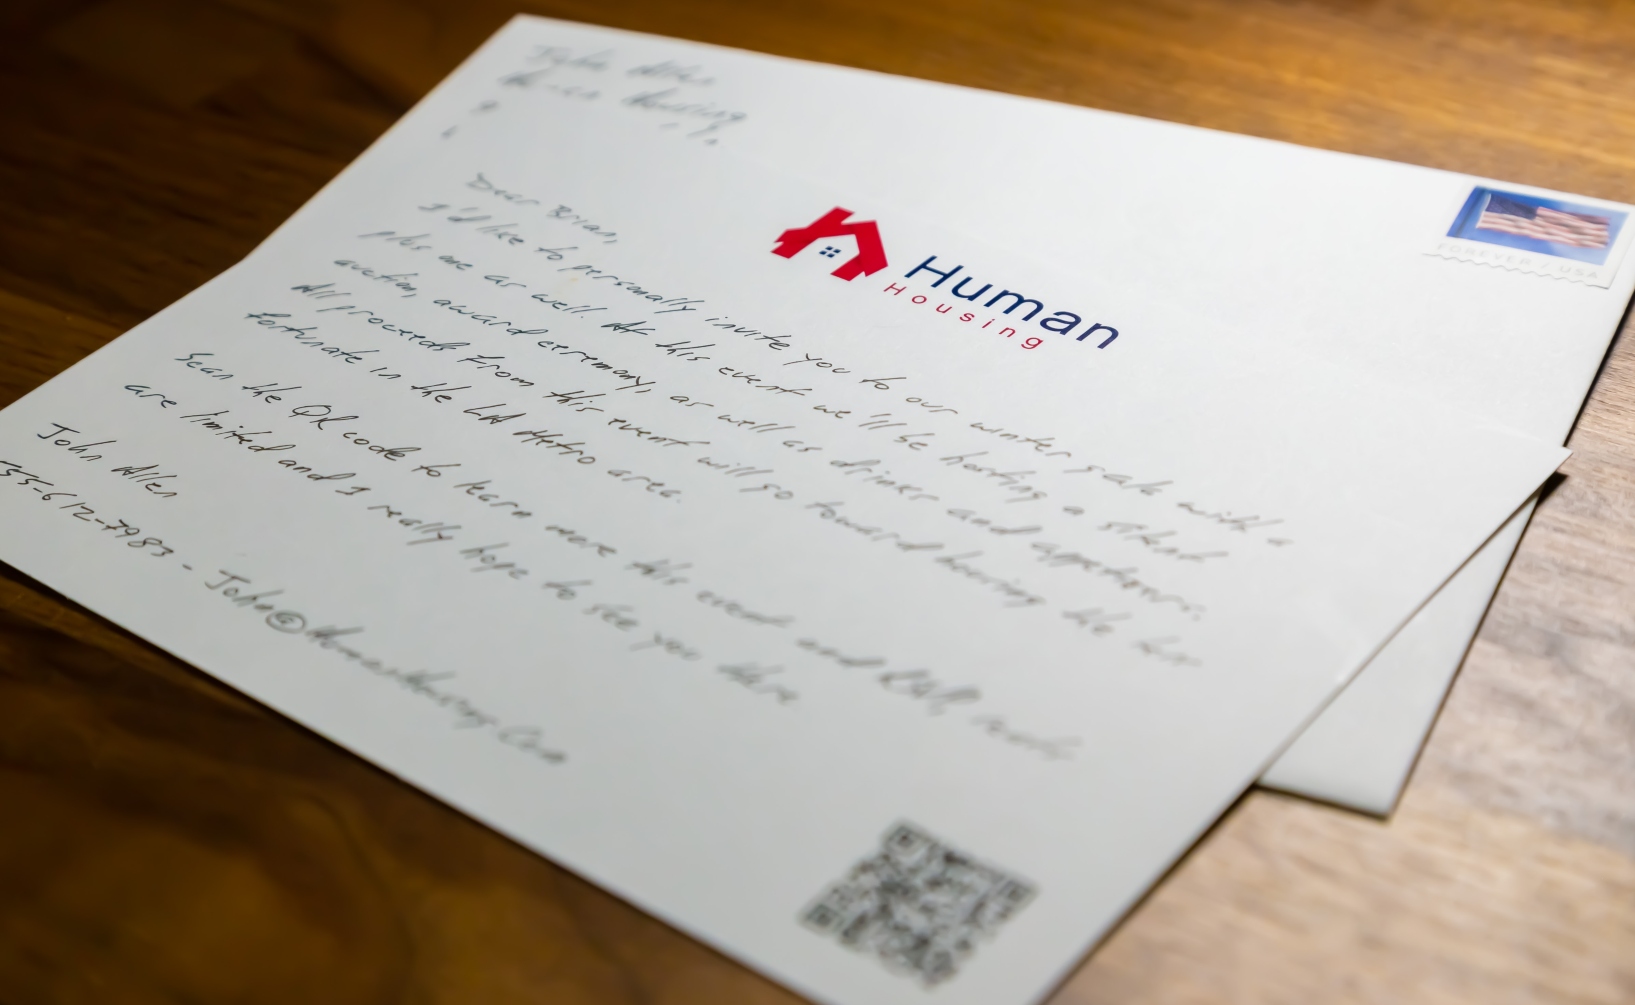 John Allen
Human Housing
Human
Housing
FOREVER / USA
Dear Brian,
I'd like to personally invite you to our winter gala with a
plus one as well. At this event we'll be hosting a silent
auction, award ceremony, as well as drinks and appetizers.
All proceeds from this event will go toward housing the less
fortunate in the LA Metro area.
Scan the QR code to learn more this event and RSVP,
are limited and I really hope to see you there
John Allen
55-612-7983 - John@HumanHousing.Com